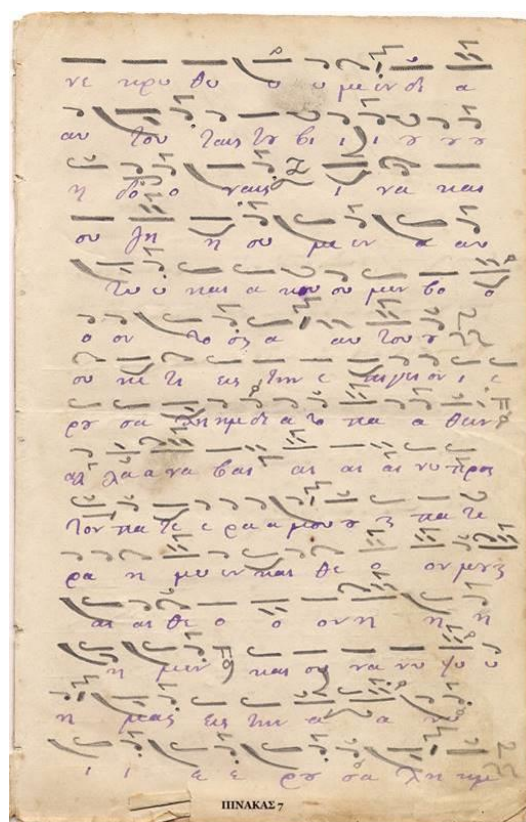 νε κρω θω ω ω με εν δι α
αυ του ταις του βι ι ι ου ου ου
η δο ο ναις ι να και
συ ζη η σω με εν α αυ
τω ω και α κου σω μεν βο ο
ο ον το ος α αυ του ου
ου κε τι εις την ε πι γει ον ι ε
ρου σα λη ημ δι α το πα α θειν
αλ λα α να βαι αι αι αι νω προς
τον πα τε ε ρα α μου ου κ πα τε
ρα η μω ων και θε ο ον μου κ
αι αι θε ο ο ον η η η
η μων και συ να νυ ψω ω
η μας εις την α α νω
ι ι ε ε ρου σα λη ημ
ΠΙΝΑΚΑΣ 7